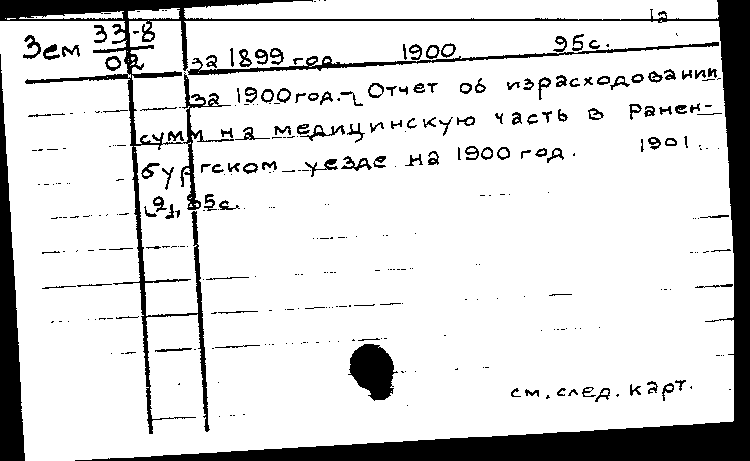 1а
Зем 33-8
02
за 1899 год. 1900 95с.
за 1900 год. - Отчет об израсходовании
сумм на медицинскую часть в Ранен-
бургском уезде на 1900 год. 1901.
85с.
см. след. карт.